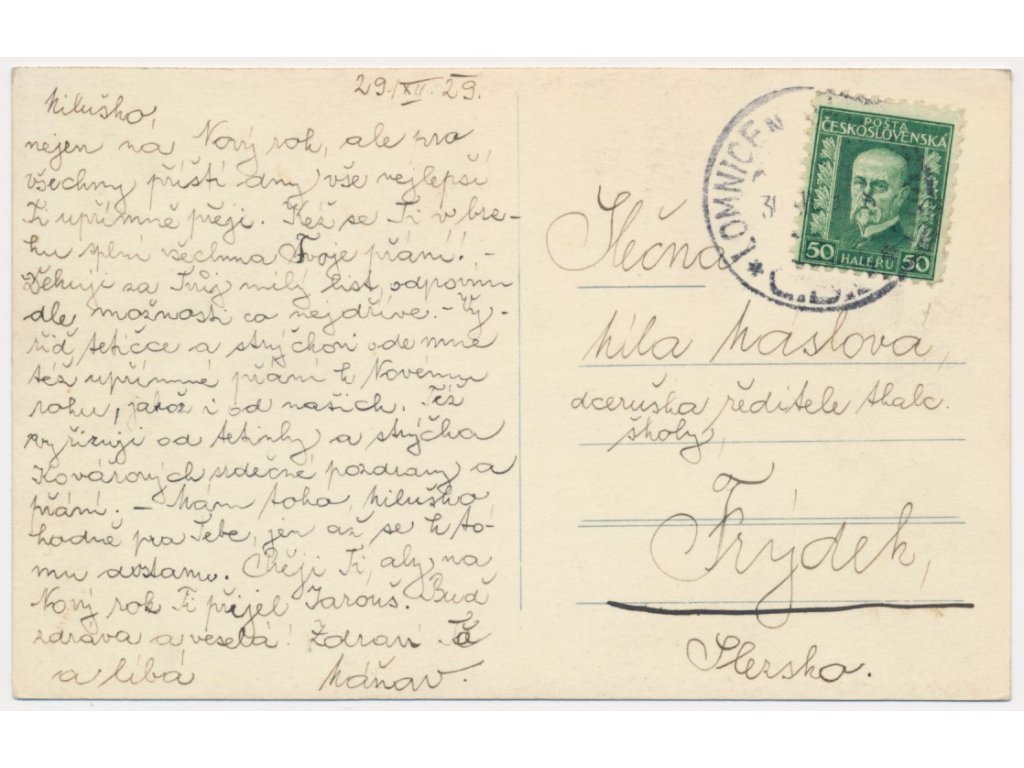 29./XII. 29.
Miluško,
nejen na Nový rok, ale pro
všechny příští dny vše nejlepší
Ti upřímně přeji. Též se Ti v bre-
ku splní všechna Tvoje přání! -
Děkuji za Tvůj milý list, odpovím
dle možnosti co nejdříve. - Vy-
řiď tetičce a strýčkovi ode mne
též upřímné přání k Novému
roku, jakož i od našich. Též
vyřizuji od tetinky a strýčka
Kovářových srdečné pozdravy a
přání. - Mám toho, Miluško
hodně pro Tebe, jen až se k to-
mu dostanu. Přeji Ti, aby na
Nový rok Ti přijel Jarouš. Buď
zdráva a veselá! Zdraví Tě
a líbá
POŠTA
ČESKOSLOVENSKÁ
50 HALÉŘŮ 50
* LOMNICE N
Slečna
Míla Maslová,
dceruška ředitele tkalc.
školy,
Frýdek,
Slezsko.